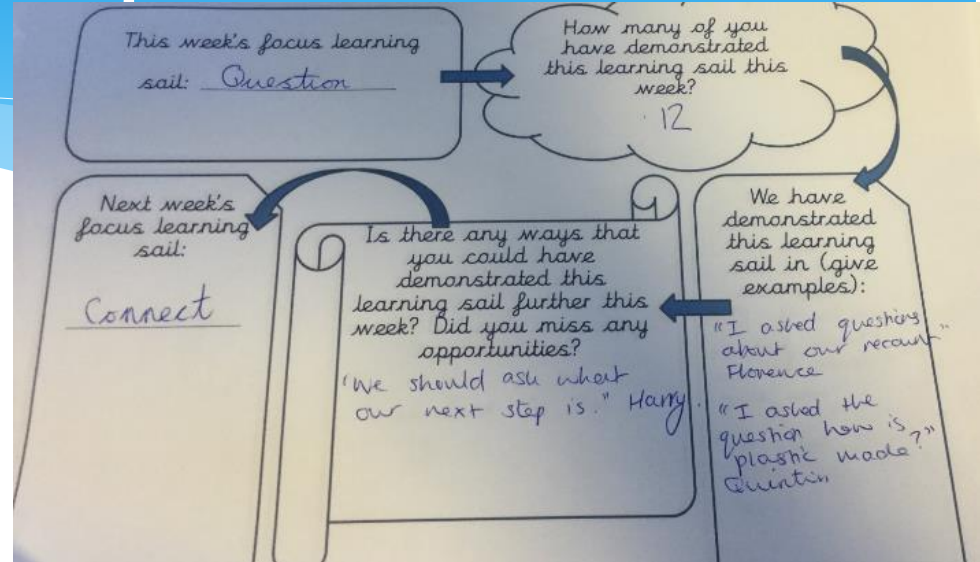 This week's focus learning
sail: Question
How many of you
have demonstrated
this learning sail this
week?
12
We have
demonstrated
this learning
sail in (give
examples):
"I asked questions
about our recount"
Florence
"I asked the
question how is
plastic made?"
Quintin
Is there any ways that
you could have
demonstrated this
learning sail further this
week? Did you miss any
opportunities?
"We should ask what
our next step is." Harry.
Next week's
focus learning
sail:
Connect